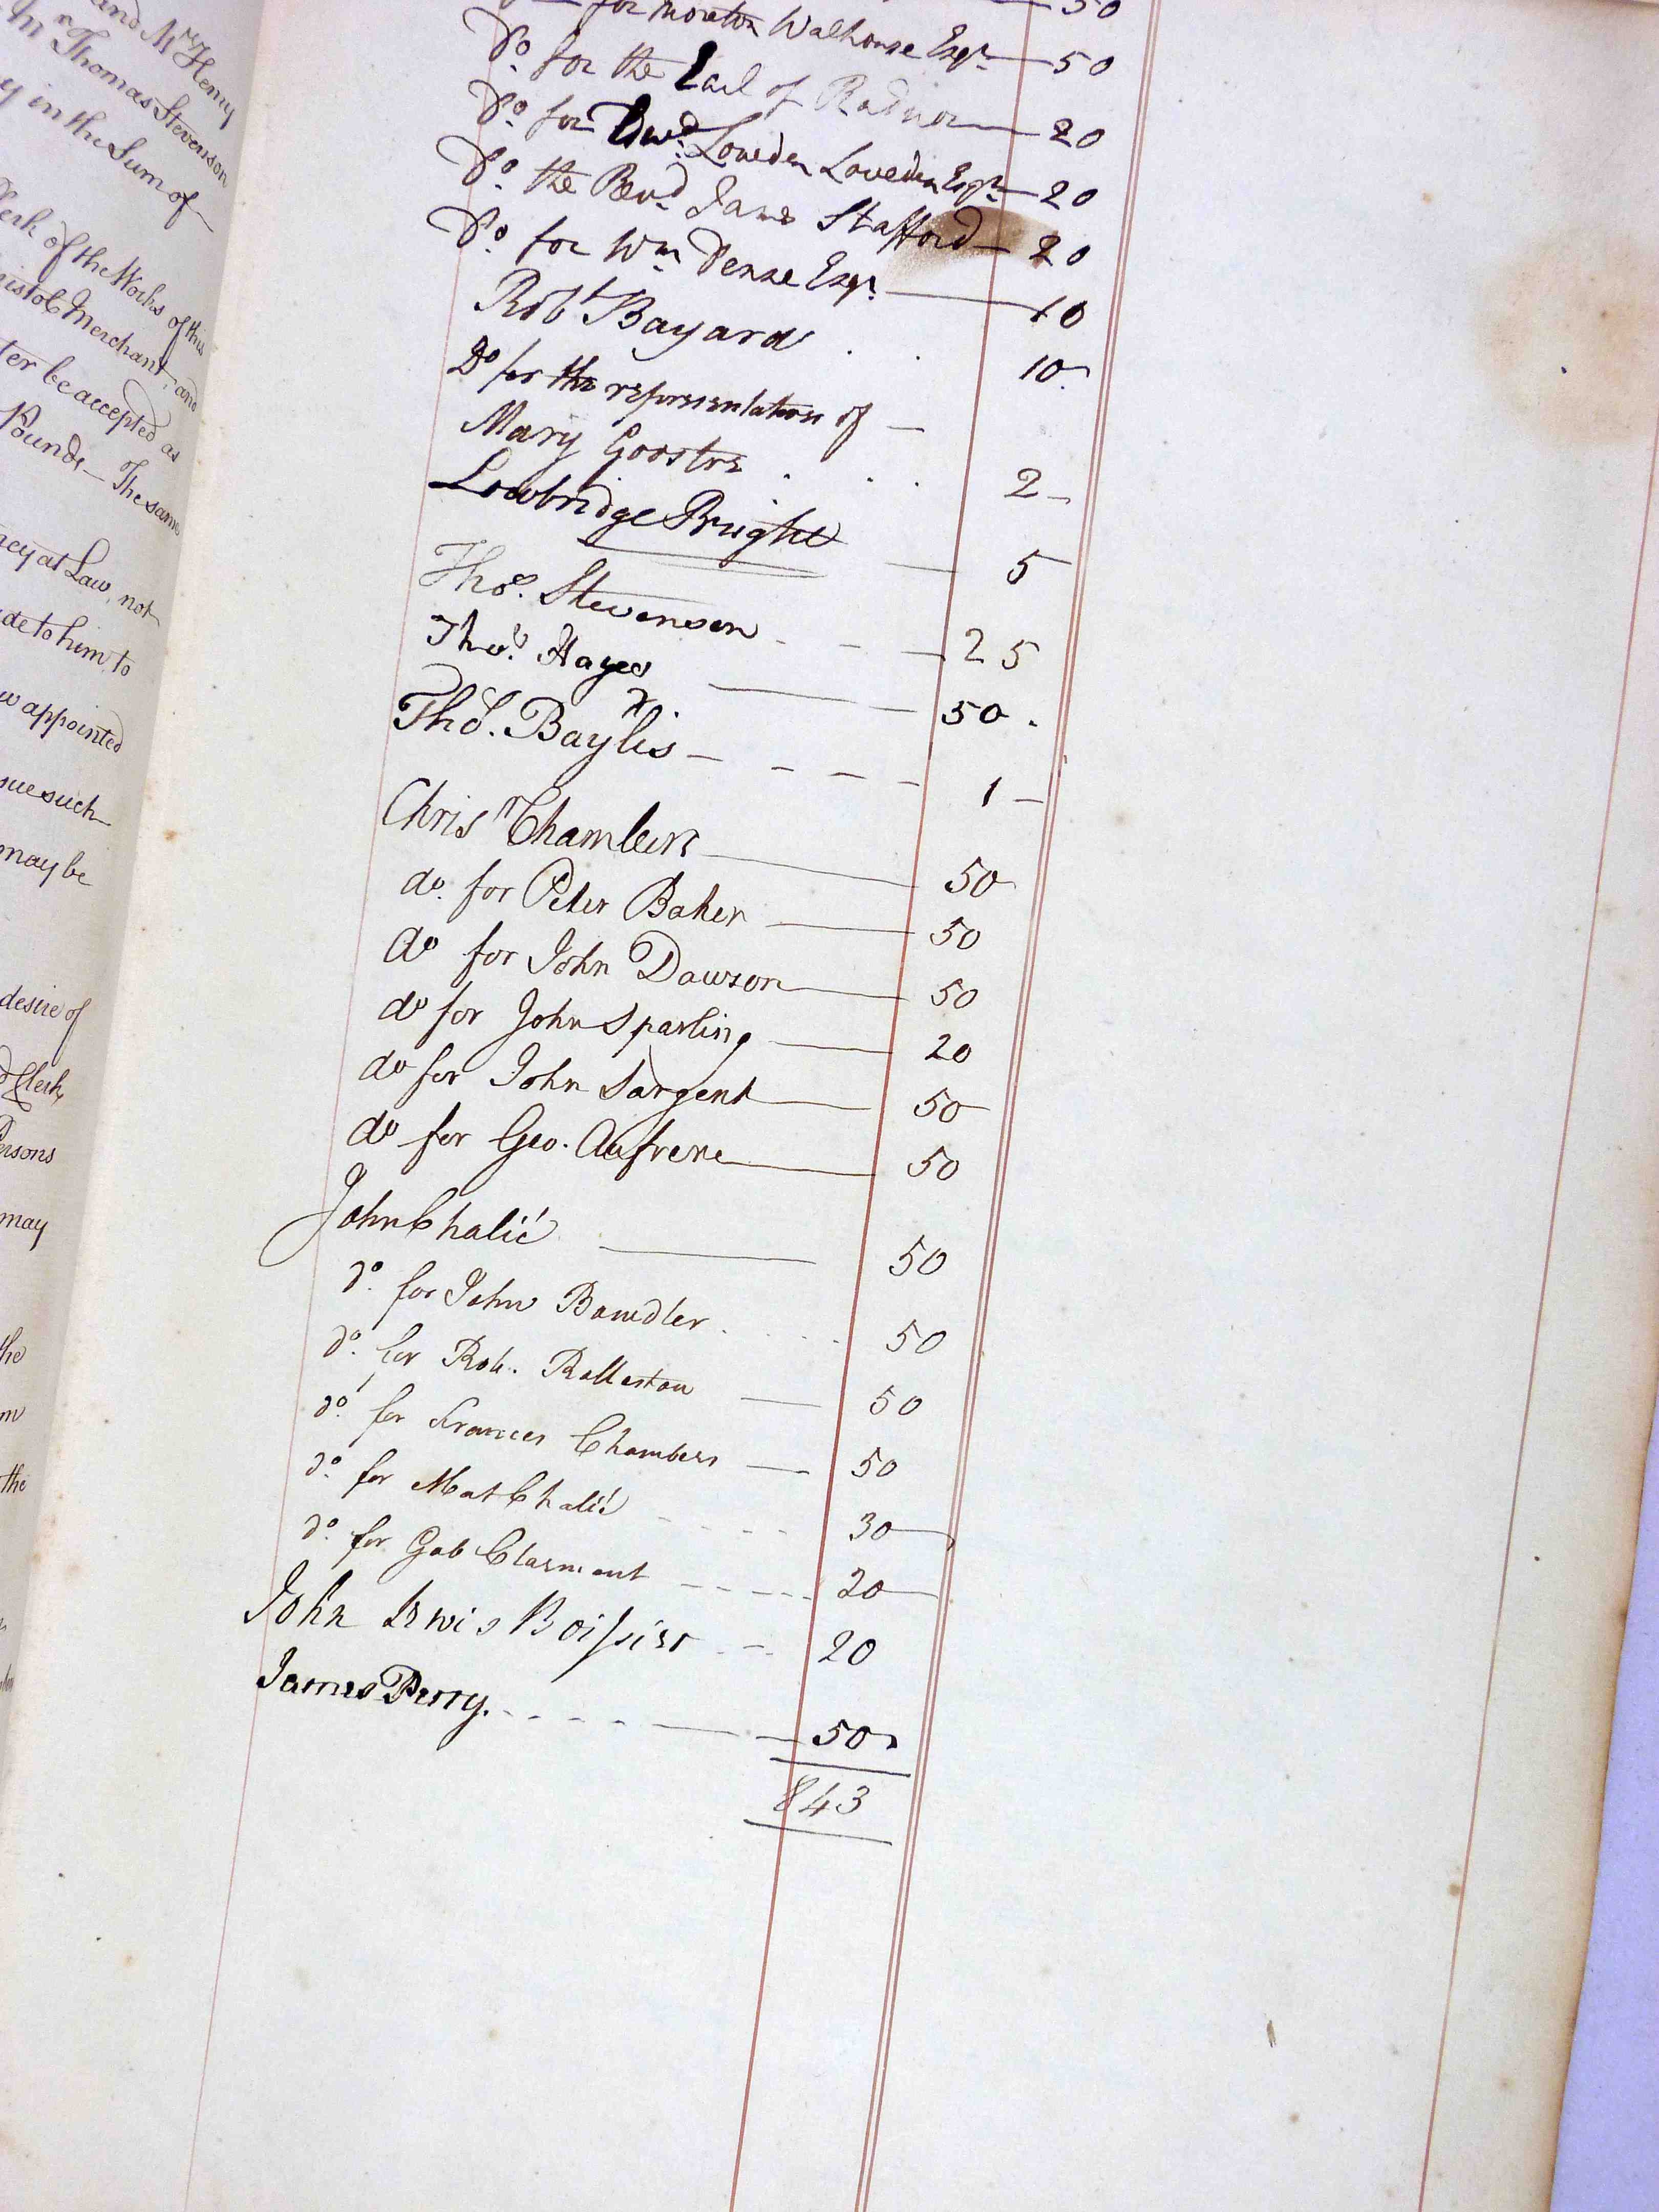 and Mr. Henry
Thomas Stevenson
in the Sum of
Clerk of the Works of this
Bristol Merchant, and
be accepted as
Pounds – The same
at Law, not
to him, to
appointed
such
may be
desire of
Clerk,
Persons
may
the
the
50
for Moreton Walhouse Esqr. 50
Do. for the Earl of Radnor 20
Do. for Edwd. Loveden Loveden Esqr. 20
Do. the Revd. James Stafford 20
Do. for Wm. Dense Esqr. 10
Robt. Bayard 10
Do for the representatives of
Mary Goostre 2
Lowbridge Bright 5
Thos. Stevenson 25
Thos. Hayes 50
Thos. Baylis 1
Chrisr Chambers 50
do. for Peter Baker 50
do for John Dawson 50
do for John Sparling 20
do for John Sargent 50
do for Geo. Aufrere 50
John Chalié 50
do. for John Bowdler 50
do. for Rob. Rolleston 50
do. for Frances Chambers 50
do. for Mat Chalié 30
do. for Gab Clarmont 20
John Lewis Boissier 20
James Perry. 50
843